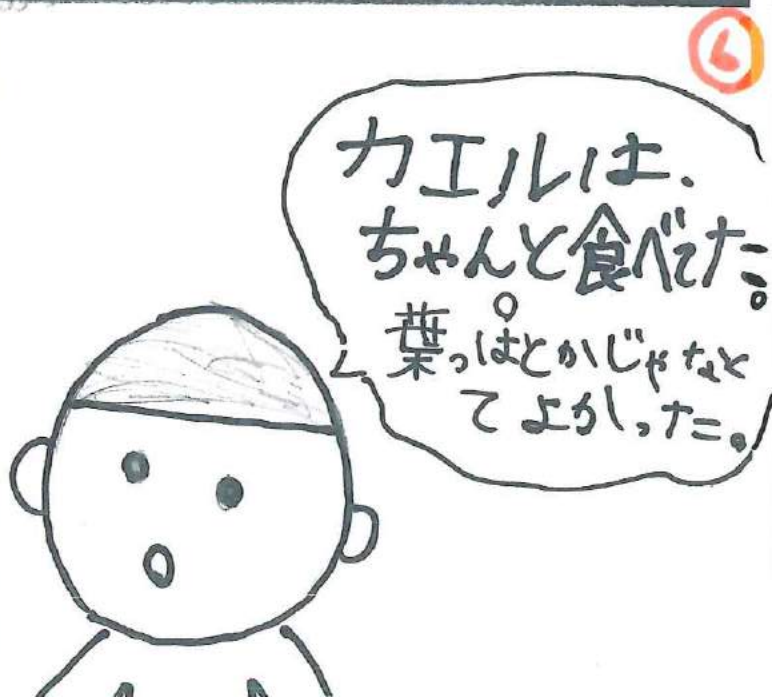 6
カエルは、
ちゃんと食べてた。
葉っぱとかじゃなく
てよかった。